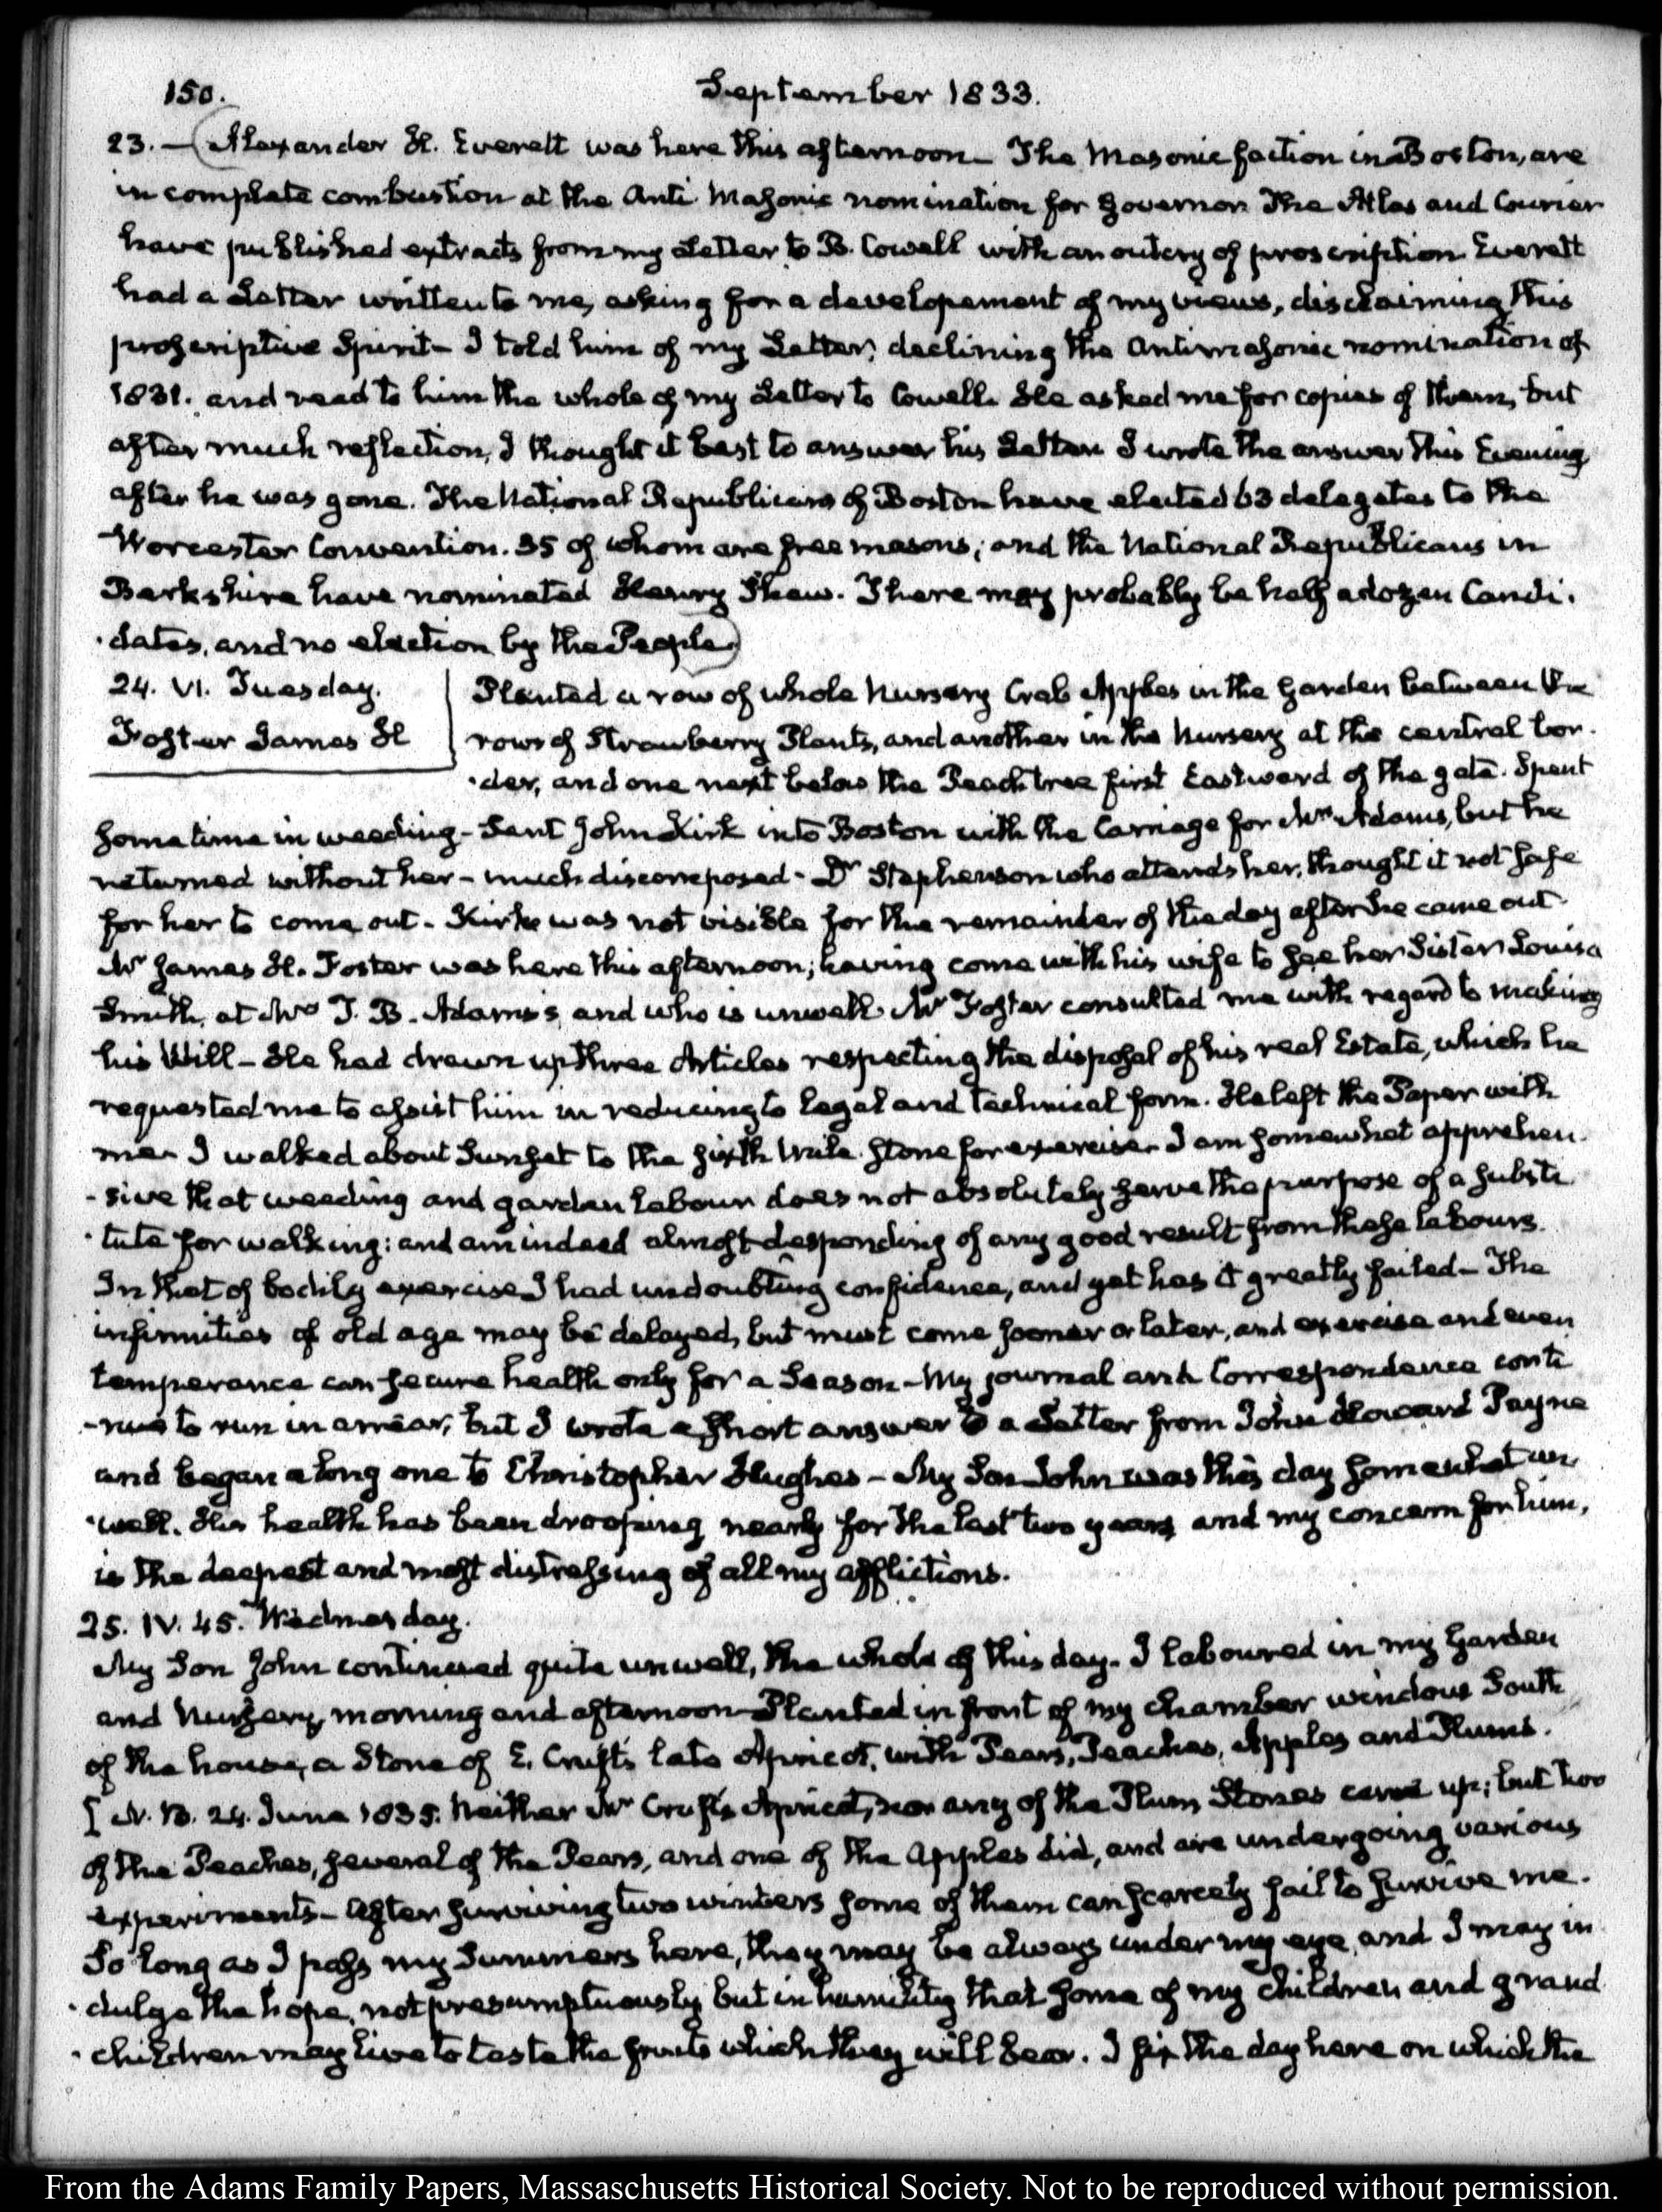 150. September 1833.
23. — (Alexander H. Everett was here this afternoon — The Masonic faction in Boston, are
in complete combustion at the Anti Masonic nomination for Governor. The Atlas and Courier
have published extracts from my Letter to B. Cowell with an outcry of proscription. Everett
had a Letter written to me, asking for a developement of my views, disclaiming this
proscriptive Spirit — I told him of my Letter, declining the Antimasonic nomination of
1831. and read to him the whole of my Letter to Cowell. He asked me for copies of them, but
after much reflection, I thought it best to answer his Letter. I wrote the answer this Evening
after he was gone. The National Republicans of Boston have elected 63 delegates to the
Worcester Convention. 35 of whom are free masons; and the National Republicans in
Berkshire have nominated Henry Shaw. There may probably be half a dozen Candi-
-dates, and no election by the People)
24. VI. Tuesday.
Foster James H
Planted a row of whole Nursery Crab Apples in the Garden between the
rows of Strawberry Plants, and another in the Nursery at the central bor-
-der, and one next below the Peach tree first Eastward of the gate. Spent
some time in weeding — Sent John Kirk into Boston with the Carriage for Mrs Adams, but he
returned without her — much discomposed — Dr Stephenson who attends her, thought it not safe
for her to come out — Kirke was not visible for the remainder of the day after he came out.
Mr James H. Foster was here this afternoon; having come with his wife to see her Sister Louisa
Smith, at Mrs T. B. Adams's, and who is unwell. Mr Foster consulted me with regard to making
his Will — He had drawn up three Articles respecting the disposal of his real Estate, which he
requested me to assist him in reducing to legal and technical form. He left the Paper with
me — I walked about Sunset to the sixth Mile Stone for exercise. I am somewhat apprehen-
-sive that weeding and garden labour does not absolutely serve the purpose of a substi-
-tute for walking: and am indeed almost desponding of any good result from these labours.
In that of bodily exercise I had undoubting confidence, and yet has it greatly failed — The
infirmities of old age may be delayed, but must come sooner or later, and exercise and even
temperance can secure health only for a Season — My journal and Correspondence conti-
-nue to run in arrear, but I wrote a short answer to a Letter from John Howard Payne
and began a long one to Christopher Hughes — My Son John was this day somewhat un-
-well. His health has been drooping nearly for the last two years and my concern for him,
is the deepest and most distressing of all my afflictions.
25. IV. 45. Wednesday.
My Son John continued quite unwell, the whole of this day. I laboured in my Garden
and Nursery, morning and afternoon — Planted in front of my chamber windows South
of the house, a Stone of E. Cruft's late Apricot, with Pears, Peaches, Apples and Plums.
[N.B. 24. June 1835. Neither Mr Cruft's Apricot, nor any of the Plum Stones came up; but two
of the Peaches, several of the Pears, and one of the Apples did, and are undergoing various
experiments — After surviving two winters some of them can scarcely fail to survive me.
So long as I pass my Summers here, they may be always under my eye, and I may in-
-dulge the hope, not presumptuously but in humility that some of my children and grand
-children may live to taste the fruits which they will bear. I fix the day here on which the
From the Adams Family Papers, Massaschusetts Historical Society. Not to be reproduced without permission.